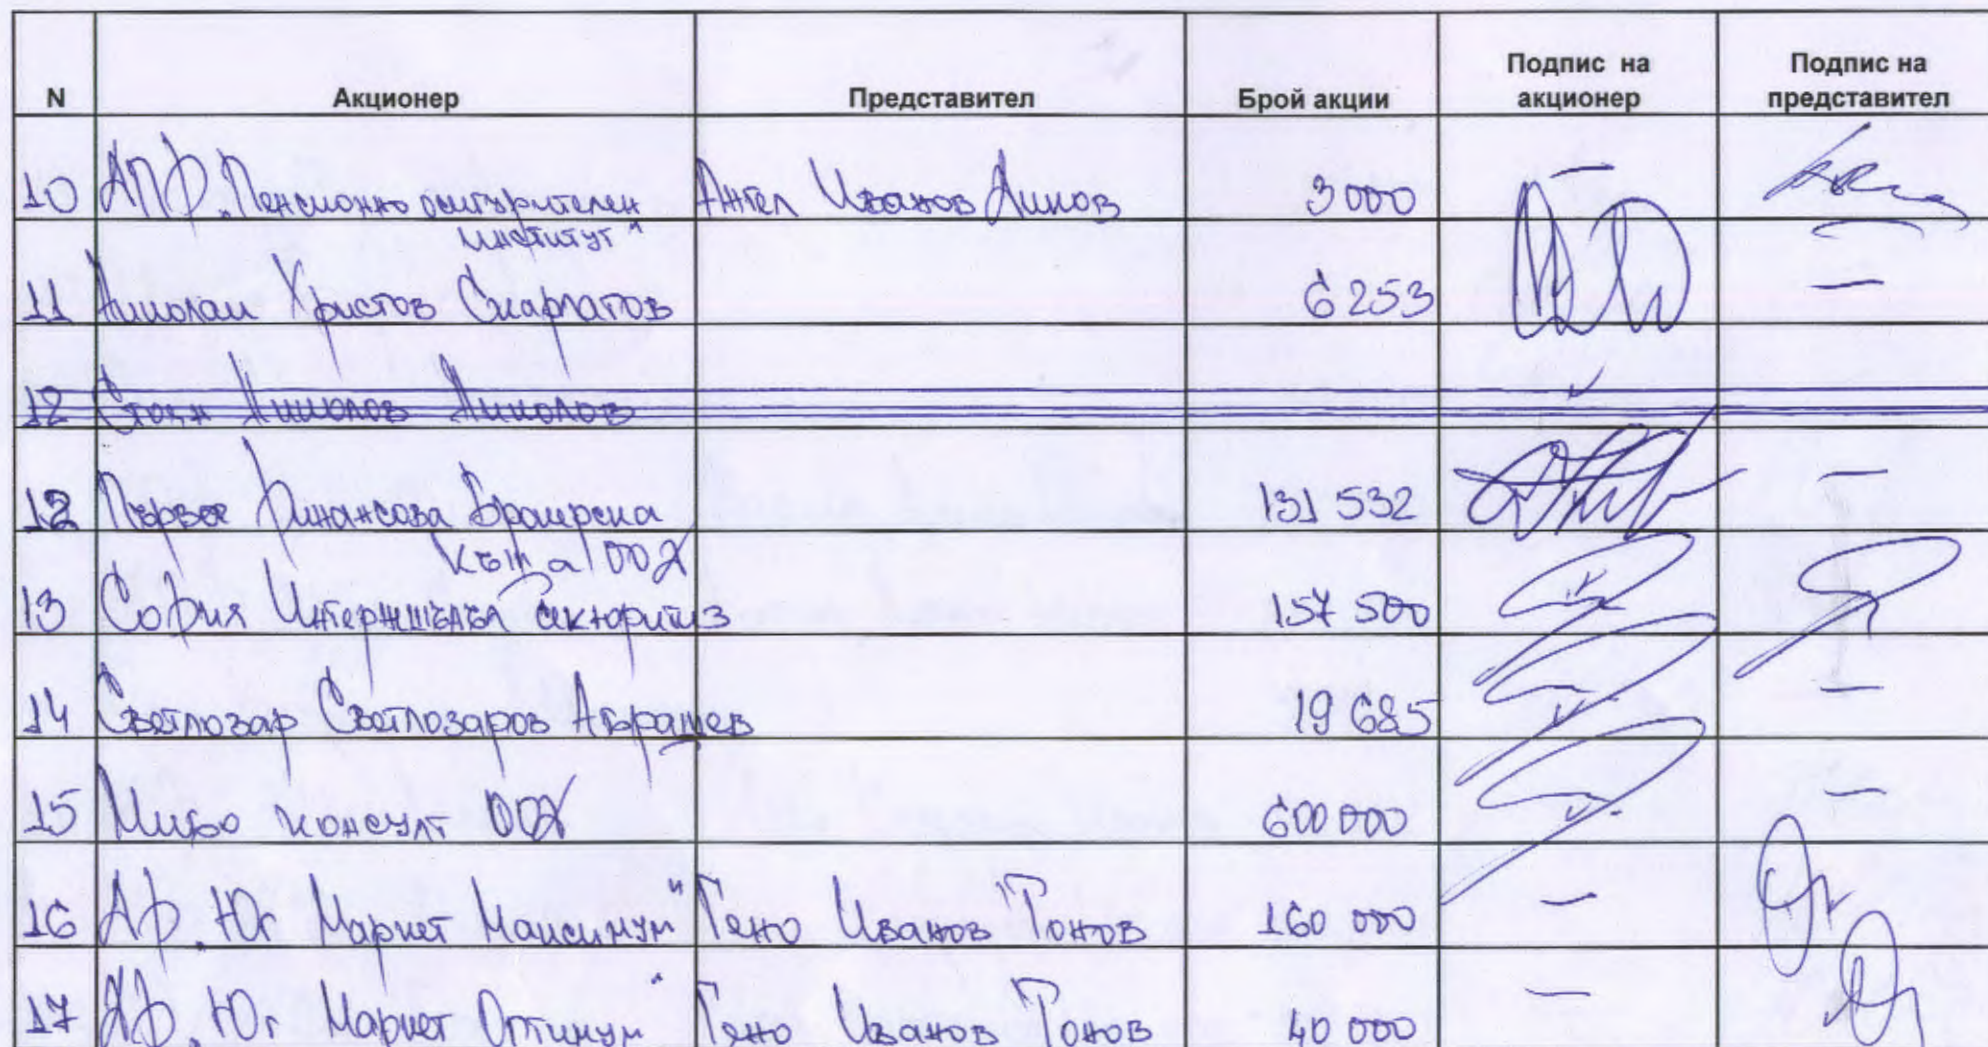 N Акционер Представител Брой акции Подпис на акционер Подпис на представител
10 ДПФ "Пенсионно осигурителен институт" Ангел Иванов Димов 3 000 — 
11 Николай Христов Скарлатов 6 253 —
12 Стоян Николов Николов
12 Първа Финансова Брокерска Къща ООД 131 532 —
13 София Интернешънъл Секюритиз 157 500
14 Светлозар Светлозаров Абрашев 19 685 —
15 Мибо консулт ООД 600 000 —
16 ДФ "Юг Маркет Максимум" Гено Иванов Тонов 160 000 —
17 ДФ "Юг Маркет Оптимум" Гено Иванов Тонов 40 000 —